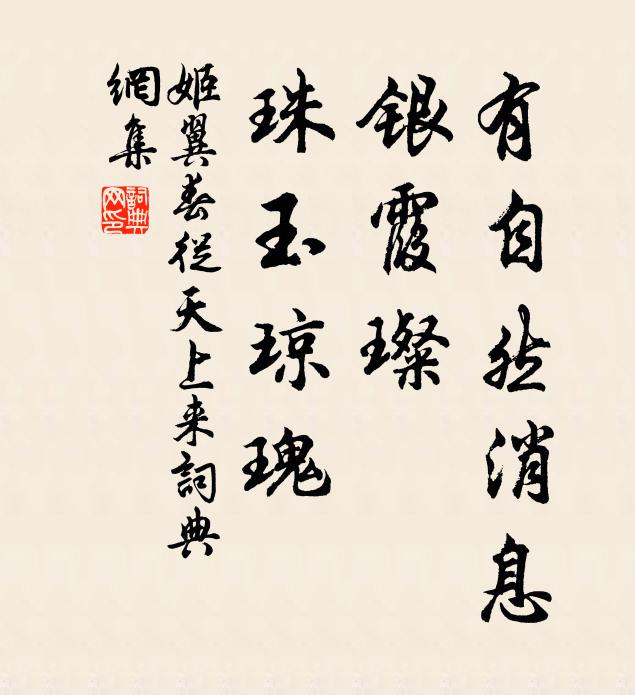 有自然消息
银霞璨
珠玉琼瑰
姬翼春從天上来詞典
網集
詞典
网印